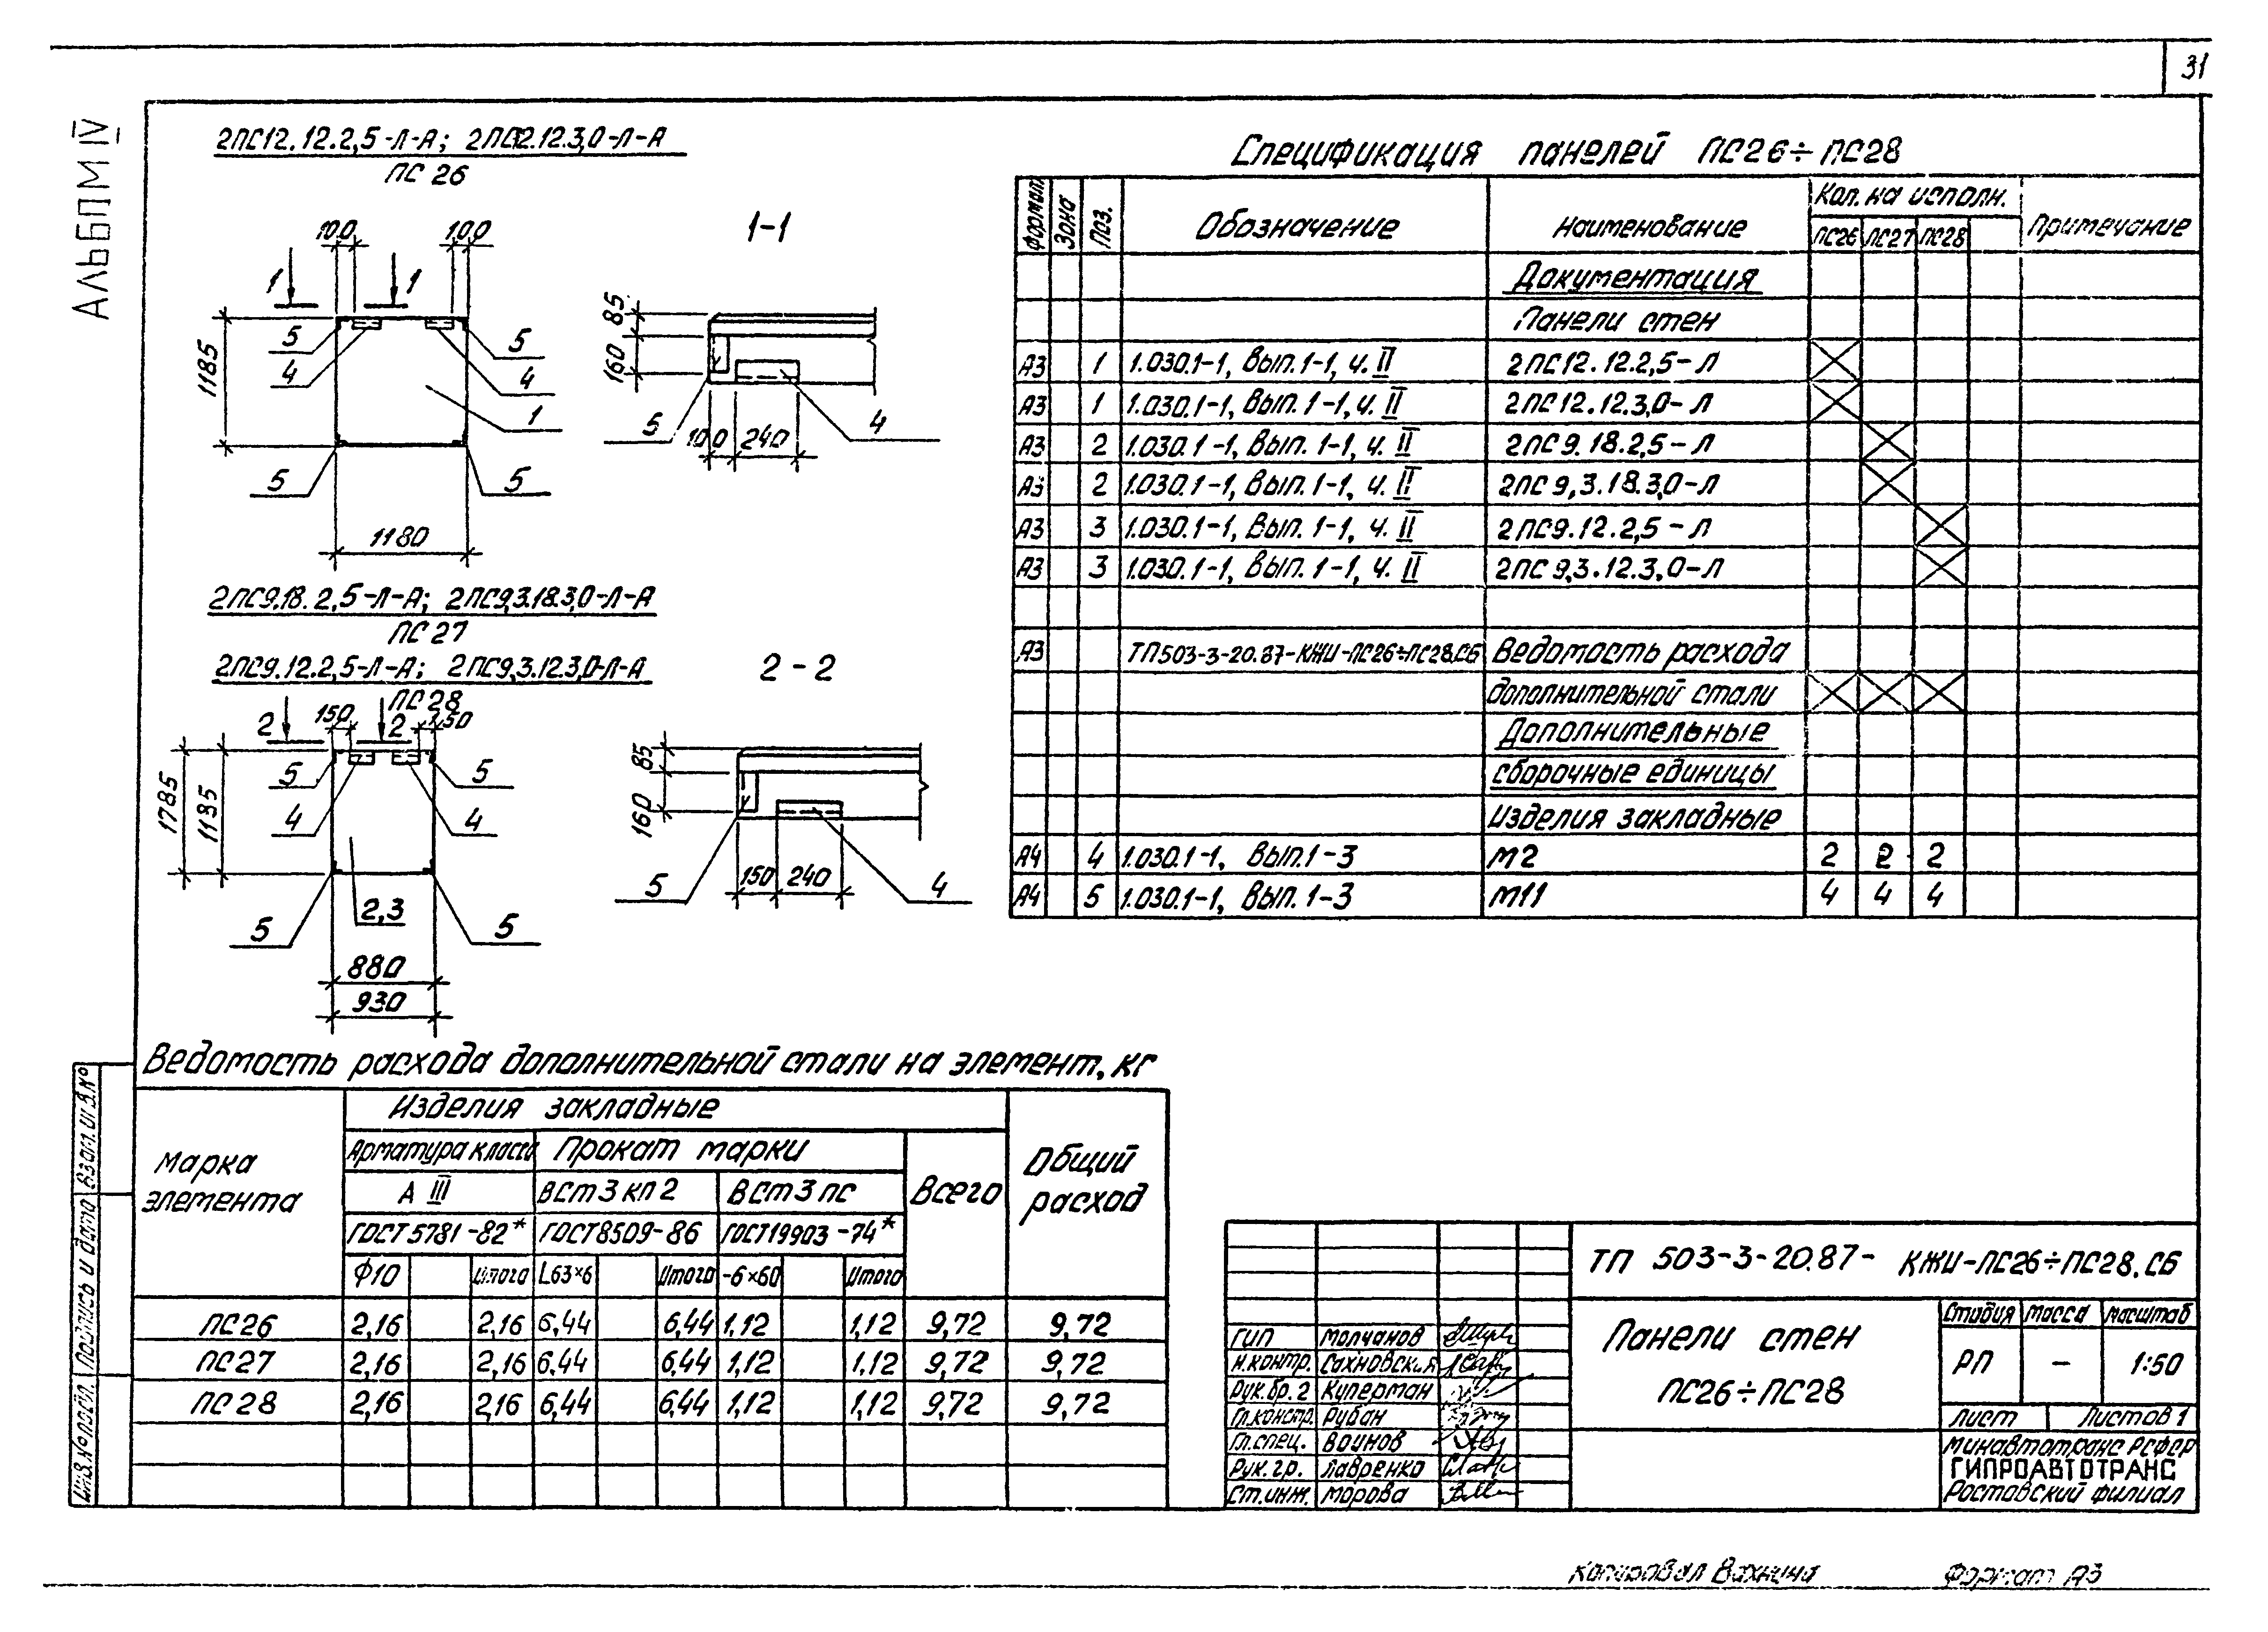 31
АЛЬБПМ IV
2ПС12.12.2,5-Л-А; 2ПС12.12.3,0-Л-А
ПС 26
100 100
1 1
5 5
4 4
1185
1
5 5
1180
1-1
85
160
5 100 240 4
2ПС9.18.2,5-Л-А; 2ПС9,3.18.3,0-Л-А
ПС 27
2ПС9.12.2,5-Л-А; 2ПС9,3.12.3,0-Л-А
ПС 28
2 150 2 150
5 5
4 4
1785 1185
2,3
5 5
880
930
2-2
85
160
5 150 240 4
Спецификация панелей ПС26÷ПС28
Формат Зона Поз. Обозначение Наименование Кол. на исполн. Примечание
ПС26 ПС27 ПС28
Документация
Панели стен
А3 1 1.030.1-1, Вып. 1-1, ч. II 2ПС12.12.2,5-Л
А3 1 1.030.1-1, Вып. 1-1, ч. II 2ПС12.12.3,0-Л
А3 2 1.030.1-1, Вып. 1-1, ч. II 2ПС9.18.2,5-Л
А3 2 1.030.1-1, Вып. 1-1, ч. II 2ПС9,3.18.3,0-Л
А3 3 1.030.1-1, Вып. 1-1, ч. II 2ПС9.12.2,5-Л
А3 3 1.030.1-1, Вып. 1-1, ч. II 2ПС9,3.12.3,0-Л
А3 ТП503-3-20.87-КЖИ-ПС26÷ПС28.СБ Ведомость расхода
дополнительной стали
Дополнительные
сборочные единицы
Изделия закладные
А4 4 1.030.1-1, Вып. 1-3 М2 2 2 2
А4 5 1.030.1-1, Вып. 1-3 М11 4 4 4
Ведомость расхода дополнительной стали на элемент, кг
Марка элемента Изделия закладные Общий расход
Арматура класса Прокат марки Всего
А III ВСт3кп2 ВСт3пс
ГОСТ 5781-82* ГОСТ 8509-86 ГОСТ 19903-74*
Ф10 Итого L63×6 Итого -6×60 Итого
ПС26 2,16 2,16 6,44 6,44 1,12 1,12 9,72 9,72
ПС27 2,16 2,16 6,44 6,44 1,12 1,12 9,72 9,72
ПС28 2,16 2,16 6,44 6,44 1,12 1,12 9,72 9,72
Инв.№подл. Подпись и дата Взам.инв.№
ТП 503-3-20.87- КЖИ-ПС26÷ПС28.СБ
Панели стен
ПС26÷ПС28
Стадия Масса Масштаб
РП – 1:50
Лист Листов 1
Минавтотранс РСФСР
ГИПРОАВТОТРАНС
Ростовский филиал
ГИП Молчанов
Н.контр. Сахновский
Рук.бр.2 Куперман
Гл.констр. Рубан
Гл.спец. Воинов
Рук.гр. Лавренко
Ст.инж. Морова
Копировал Вахнина Формат А3